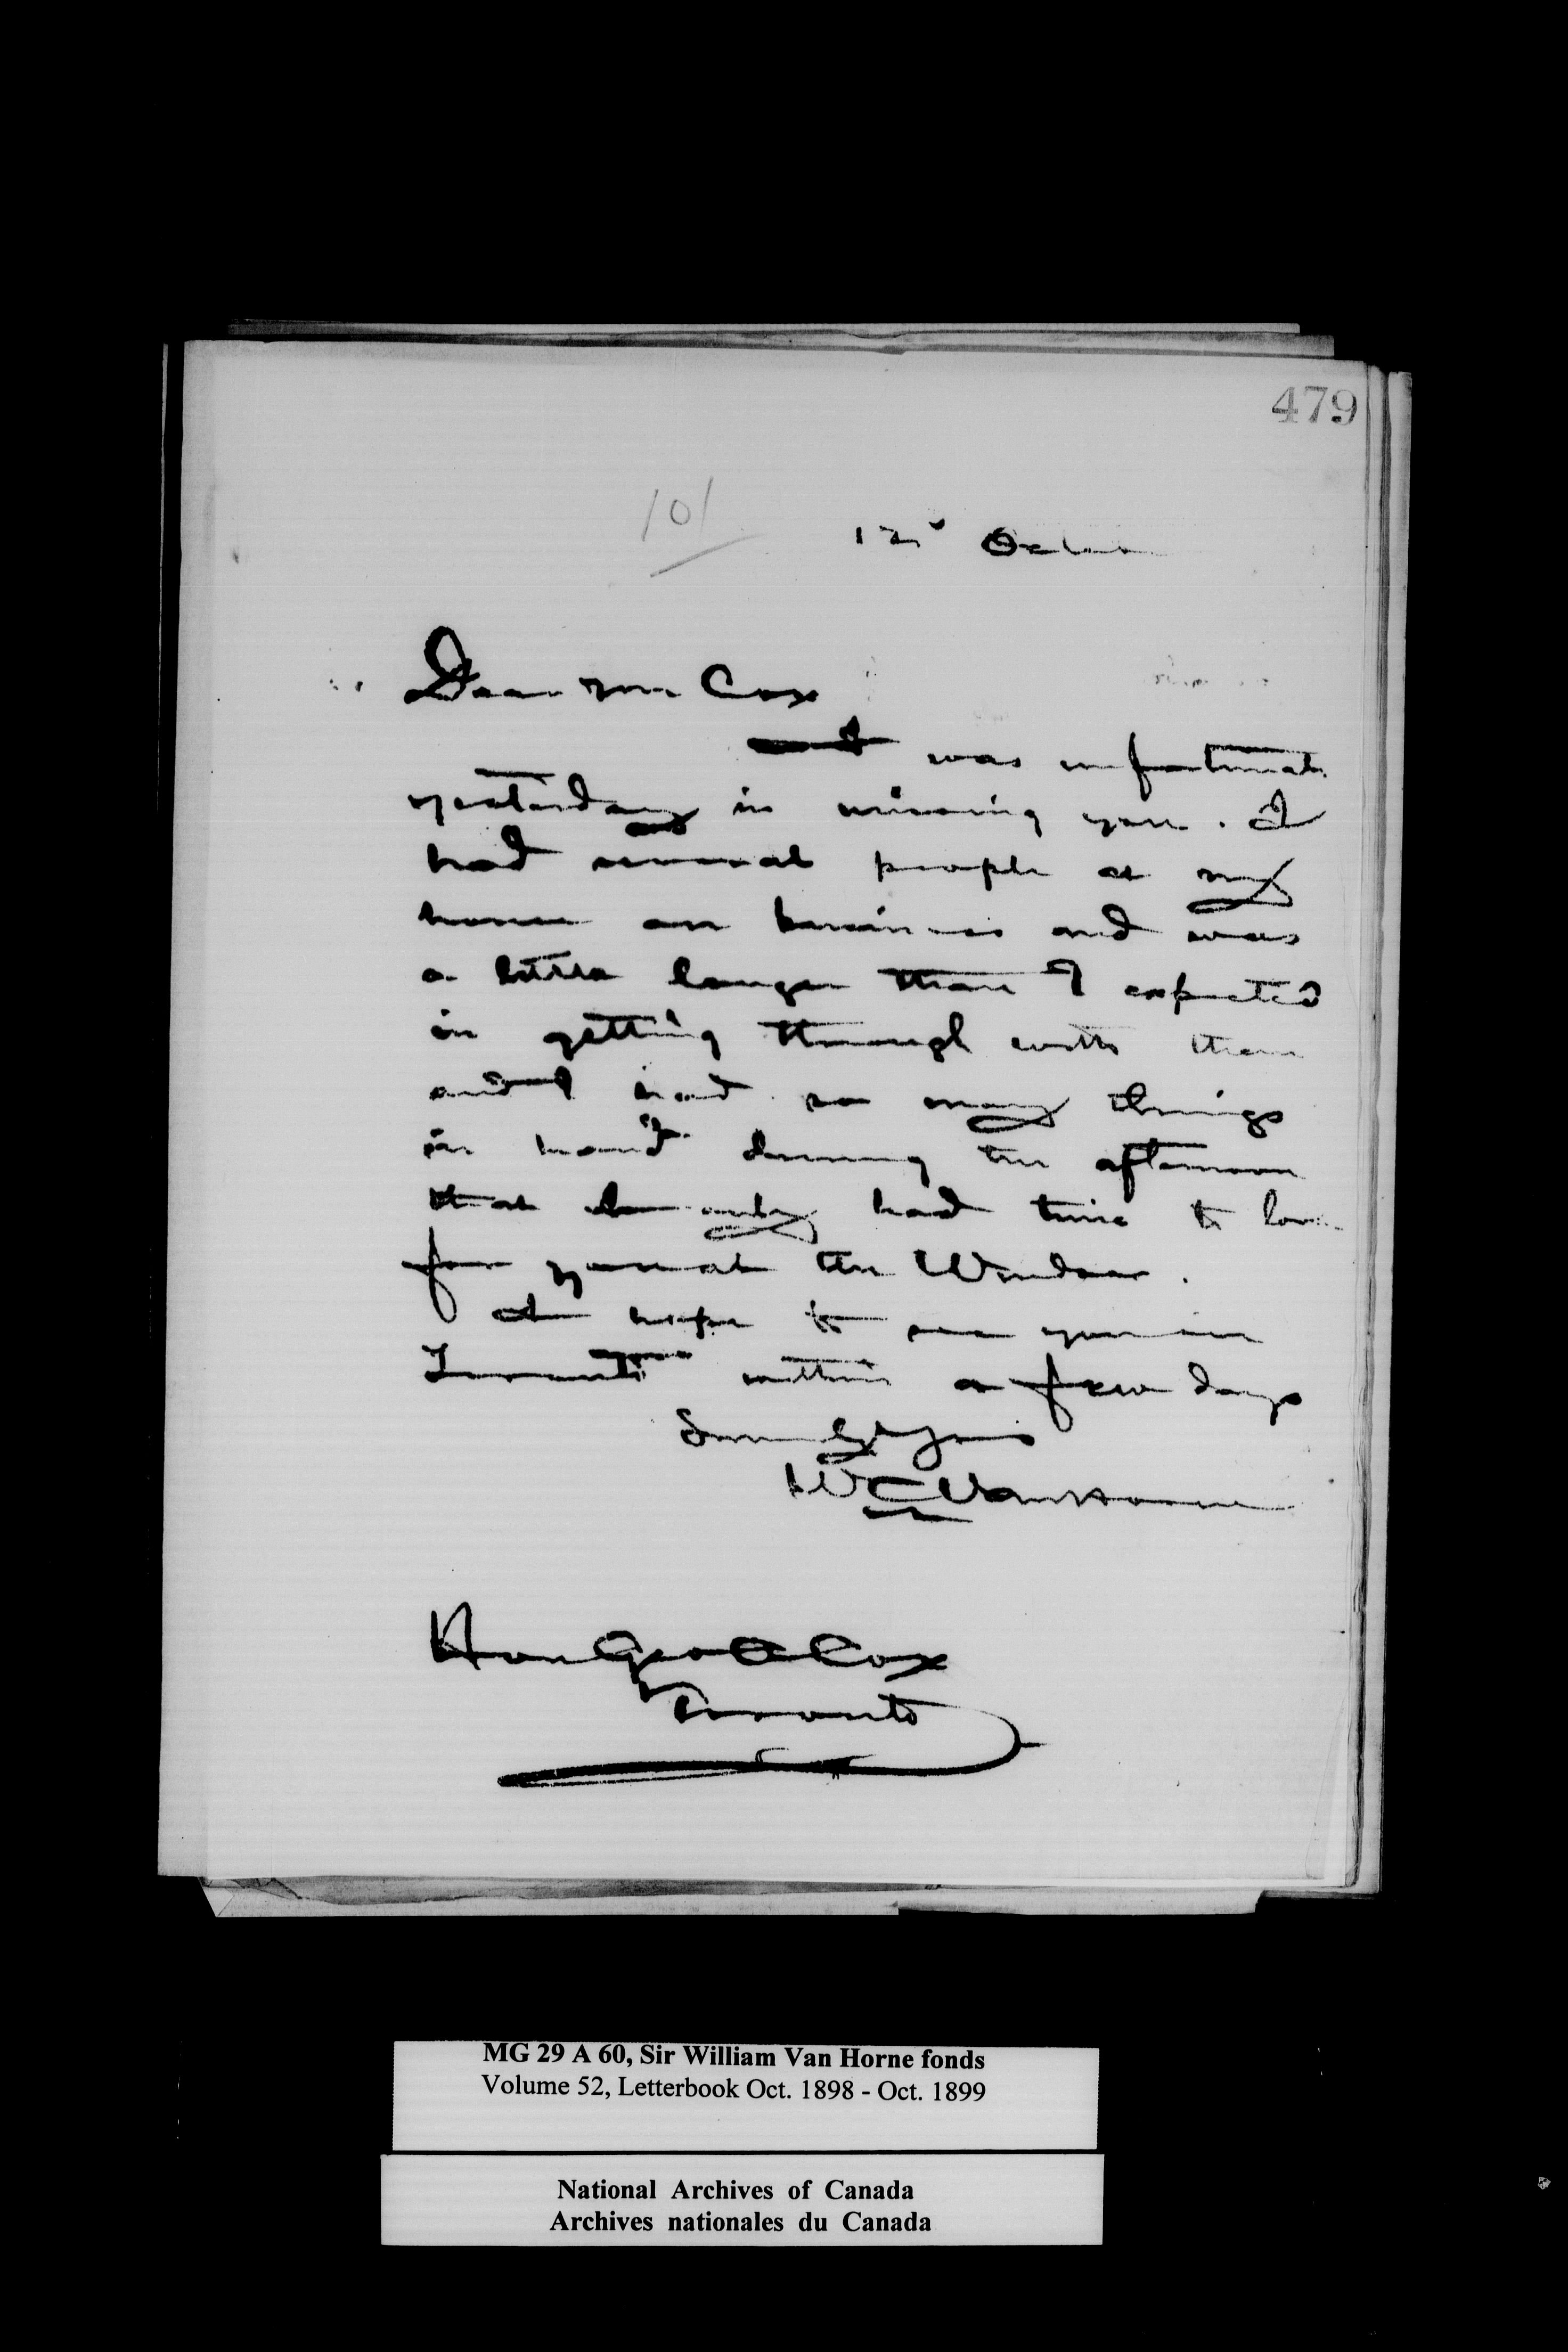 479
101
12 Octo
Dear Mr Cox
I was unfortunate
yesterday in missing you. I
had several people at my
house on business and was
a little longer than I expected
in getting through with them
and I had so many things
in hand during the afternoon
that I only had time to look
for you at the Windsor.
I hope to see you in
Toronto within a few days
Sincerely Yours
WC Van Horne
Hon Geo A Cox
Toronto
MG 29 A 60, Sir William Van Horne fonds
Volume 52, Letterbook Oct. 1898 - Oct. 1899
National Archives of Canada
Archives nationales du Canada